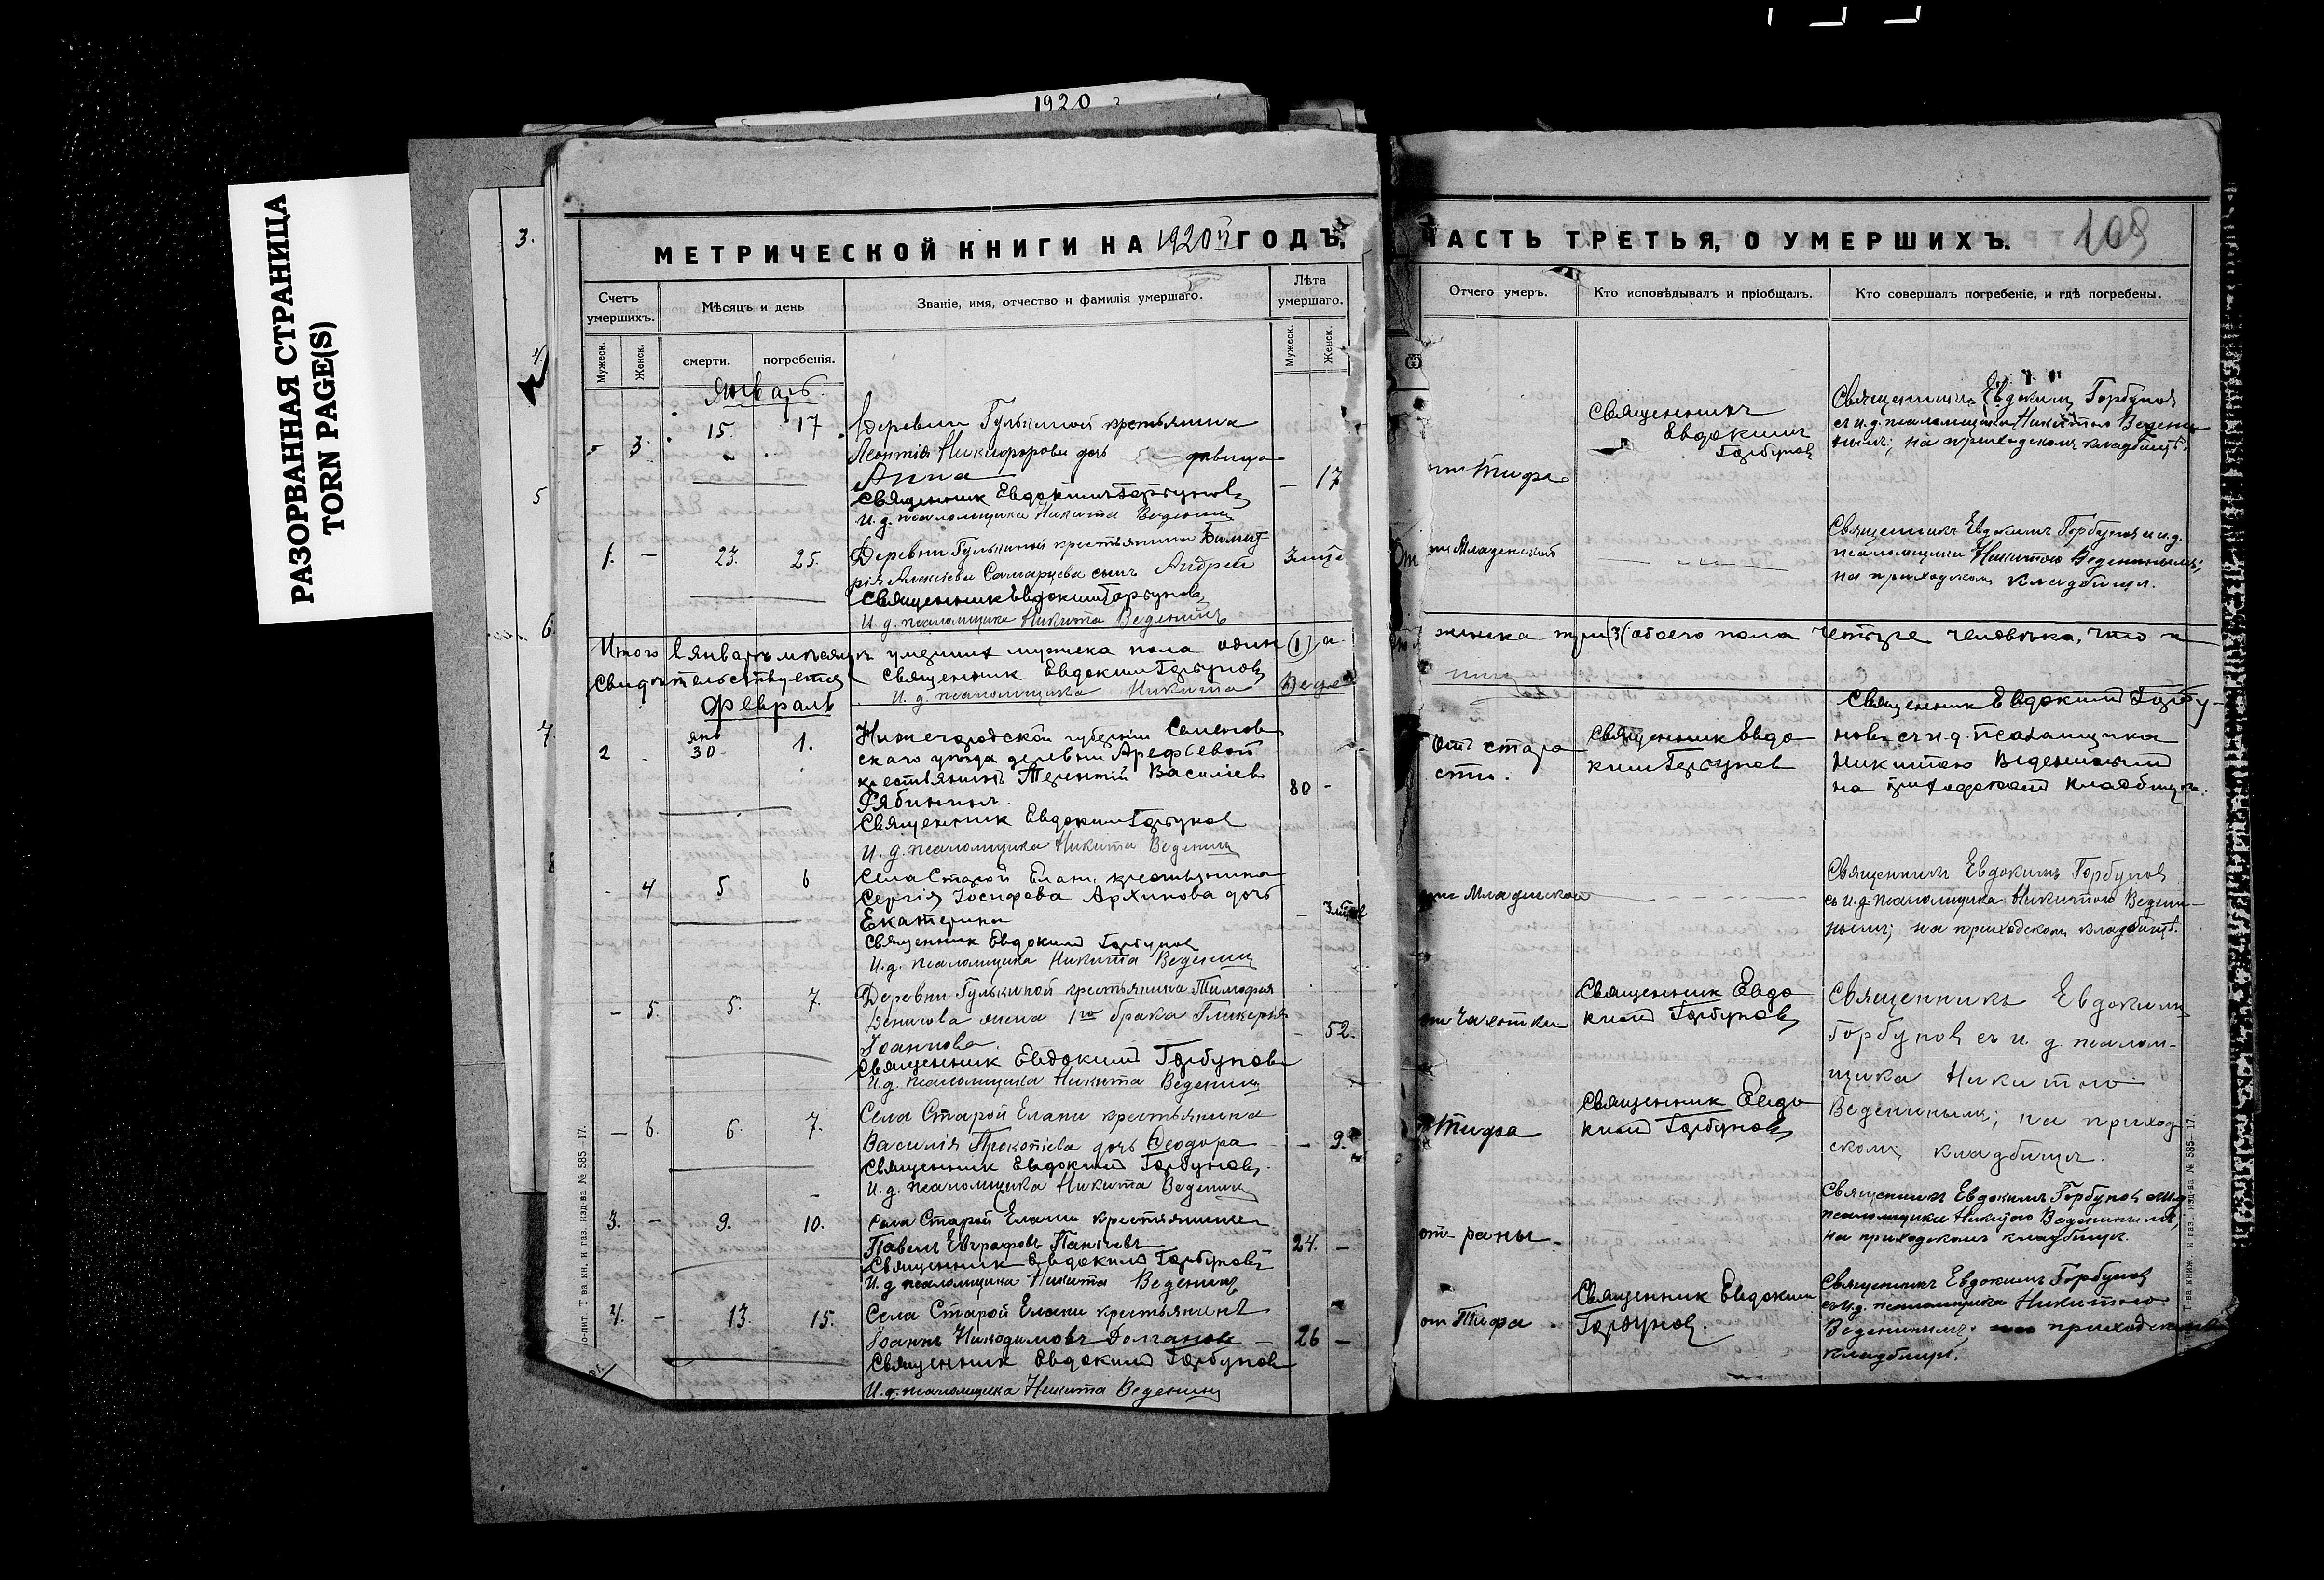 1920
РАЗОРВАННАЯ СТРАНИЦА
TORN PAGE(S)
3.
5
6
7
8
МЕТРИЧЕСКОЙ КНИГИ НА 1920й ГОДЪ,
ЧАСТЬ ТРЕТЬЯ, О УМЕРШИХЪ.
109
Счетъ умершихъ.
Мѣсяцъ и день
Званіе, имя, отчество и фамилія умершаго.
Лѣта умершаго.
Отчего умеръ.
Кто исповѣдывалъ и пріобщалъ.
Кто совершалъ погребеніе, и гдѣ погребены.
Мужеск.
Женск.
смерти.
погребенія.
Мужеск.
Женск.
Январь.
3. 15. 17.
Деревни Гулькиной крестьянина
Леонтія Никифорова дочь девица
Анна
— 17
Священник Евдокимъ Горбуновъ
И. д. псаломщика Никита Веденинъ
Тифа
Священникъ
Евдокимъ
Горбуновъ
Священникъ Евдокимъ Горбуновъ
съ и.д. псаломщика Никитою Ведени-
нымъ; на приходскомъ кладбищѣ.
1. — 23. 25.
Деревни Гулькиной крестьянина Димит
рія Алексіева Самарцева сынъ Андрей
Священник Евдоким Горбуновъ
И. д. псаломщика Никита Веденинъ
Младенской
Священникъ Евдокимъ Горбуновъ и и.д.
псаломщика Никитою Веденинымъ;
на приходском кладбище.
Итого в январѣ мѣсяцѣ умерших мужска пола один (1), а
женска три (3) обоего пола четыре человѣка, что и
свидѣтельствуется
Священник Евдоким Горбуновъ
И. д. псаломщика Никита
Февраль
2 янв 30 1.
Нижегородской губерніи Семенов
скаго уѣзда деревни Арефьевой
крестьянинъ Терентій Василіев
Рябининъ.
80 -
Священник Евдоким Горбунов
И. д. псаломщика Никита Веденинъ
Отъ старо
сти.
Священник Евдо
ким Горбунов
Священник Евдоким Горбу-
новъ с и.д. псаломщика
Никитою Веденинымъ
на приходском кладбище.
- 4 5 6
Села Старой Елани, крестьянина
Сергія Іосифова Архипова дочь
Екатерина
Священник Евдоким Горбунов
И. д. псаломщика Никита Веденинъ
Младенской
Священникъ Евдокимъ Горбуновъ
съ и.д. псаломщика Никитою Ведени—
нымъ; на приходскомъ кладбищѣ.
— 5. 5. 7.
Деревни Гулькиной крестьянина Тимофея
Денисова жена 1го брака Гликерія
Іоаннова.
— 52.
Священник Евдоким Горбунов
И. д. псаломщика Никита Веденинъ
от Чахотки
Священник Евдо
ким Горбуновъ
Священникъ Евдокимъ
Горбуновъ съ и. д. псалом-
щика Никитою
Веденинымъ; на приход
скомъ кладбище.
— 6. 6. 7.
Села Старой Елани крестьянина
Василія Прокопіева дочь Ѳеодора
— 9.
Священник Евдоким Горбуновъ.
И. д. псаломщика Никита Веденинъ
Тифа
Священник Евдо
ким Горбуновъ
3. — 9. 10.
Села Старой Елани крестьянинъ
Павелъ Евграфовъ
24. —
Священник Евдоким Горбуновъ
И. д. псаломщика Никита Веденинъ
от раны
Священникъ Евдокимъ Горбуновъ и и.д.
псаломщика Никитою Веденинымъ,
на приходскомъ кладбище.
4. — 13. 15.
Села Старой Елани крестьянинъ
Іоаннъ Никодимовъ Долганов
26 —
Священник Евдоким Горбунов
И. д. псаломщика Никита Веденинъ
от Тифа
Священник Евдоким
Горбуновъ.
Священникъ Евдокимъ Горбуновъ
съ и.д. псаломщика Никитою
Веденинымъ; на приходскомъ
кладбищѣ.
Т ва. кн. и газ. изд-ва № 585 — 17.
Т-ва книж. и газ. изд-ва № 585—17.